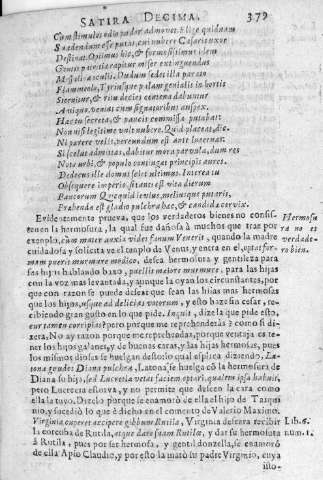 SATIRA DECIMA. 379
Cum stimulos odio pudor admovet. Elige quidnam
Suadendum esse putes, cui nubere Caesaris uxor
Destinat. Optimus hic, & formosissimus idem
Gentis patritiae rapitur miser extinguendus
Messalinae oculis. Dudum sedet illa parato
Flammeolo, Tyriusque palam genialis in hortis
Sternitur, & ritu decies centena dabuntur
Antiquo, veniet cum signatoribus auspex.
Haec tu secreta, & paucis commissa putabas?
Non nisi legitime vult nubere. Quid placeat, dic.
Ni parere velis, pereundum est ante lucernas.
Si scelus admittas, dabitur mora parvula, dum res
Nota urbi, & populo contingat principis aures.
Dedecus ille domus sciet ultimus. Interea tu
Obsequere imperio, si tanti est vita dierum
Paucorum. Quicquid levius, meliusque putaris,
Praebenda est gladio pulchra haec, & candida cervix.
Evidentemente prueva, que los verdaderos bienes no consis-
ten en la hermosura, la qual fue dañosa à muchos que traz por
exemplo, cùm mater auxia videt fanum Veneris, quando la madre
cuidadosa y solicita ve el templo de Venus, y entra en el, optat for-
mam pueris murmure modico, desea hermosura y gentileza para
sus hijos hablando baxo, puellis maiore murmure, para las hijas
con la voz mas levantada, y aunque la oyan los circunstantes, por
que con razon se puede desear que sean las hijas mas hermosas
que los hijos, usque ad delicias votorum, y esto haze sin cesar, re-
cibiendo gran gusto en lo que pide. Inquit, dize la que pide esto,
cur tamen corripias? pero porque me reprehenderàs? como si di-
xera, No ay razon porque me reprehendas, porque ventaja es te-
ner los hijos galanes, y de buenas caras, y las hijas hermosas, pues
los mismos dioses se huelgan desto: lo qual esplica diziendo, La-
tona gaudet Diana pulchra, Latona se huelga cō la hermosura de
Diana su hija, sed Lucretia vetat faciem optari, qualem ipsa habuit,
pero Lucrecia estorva, y no permite que deseen la cara como
ella la tuvo. Dizelo porque se enamorò de ella el hijo de Tarqui
nio, y sucediò lo que è dicho en el comento de Valerio Maximo.
Virginia cuperet accipere gibbum Rutilae, Virginia deseara recibir
la corcoba de Rutila, atque dare suam Rutilae, y dar su hermosura
à Rutila, pues por ser hermosa, y gentil donzella, se enamorò
de ella Apio Claudio, y por esto la matò su padre Virginio, cuya
isto-
Hermosu
ra no es
verdade-
ro bien.
Lib. 6.
num. 1.